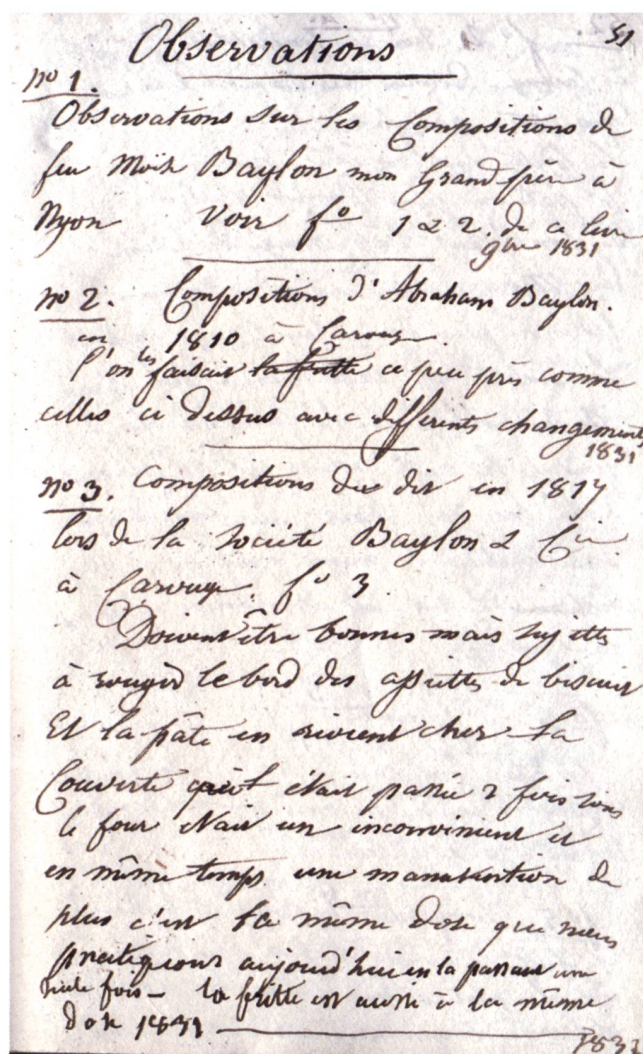 51
Observations
no 1.
Observations sur les Compositions de
feu Moïse Baylon mon Grand père à
Nyon Voir fo 1 & 2. de ce livre
9bre 1831
no 2. Compositions d'Abraham Baylon.
en 1810 à Carouge.
l'on les faisait la fritte a peu près comme
celles ci dessus avec différents changements
1831
no 3. Compositions du dit en 1817
lors de la Société Baylon & Cie
à Carouge. fo 3
Doivent être bonnes mais sujettes
à rougir le bord des assiettes de biscuit
Et la pâte en revient cher la
Couverte qui était passée 2 fois sous
le four était un inconvénient et
en même temps une manutention de
plus c'est la même dose que nous
pratiquons aujourd'hui en la passant une
seule fois – la fritte est aussi à la même
dose 1831